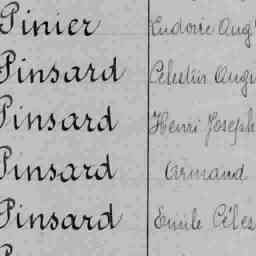 Pinier Ludovic Aug
Pinsard Célestin Augu
Pinsard Henri Joseph
Pinsard Armand
Pinsard Emile Céles